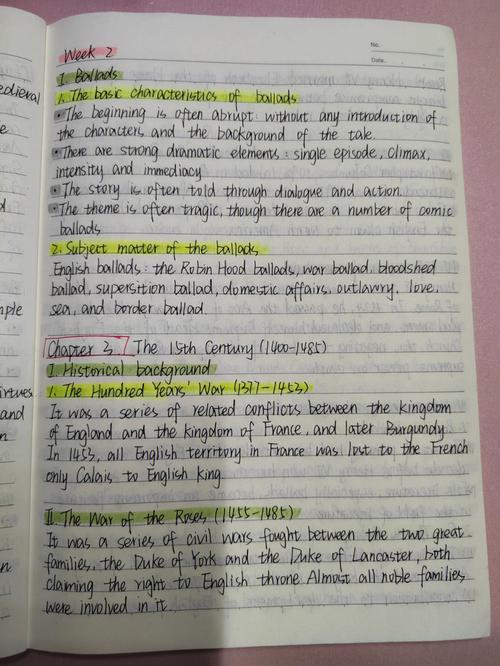 No.
Date.
Week 2
I. Ballads
1. The basic characteristics of ballads
• The beginning is often abrupt without any introduction of
the characters and the background of the tale.
• There are strong dramatic elements: single episode, climax,
intensity and immediacy
• The story is often told through dialogue and action.
• The theme is often tragic, though there are a number of comic
ballads
2. Subject matter of the ballads.
English ballads: the Robin Hood ballads, war ballad, bloodshed
ballad, supersition ballad, domestic affairs, outlawry, love,
sea, and border ballad.
Chapter 3 The 15th Century (1400-1485)
I. Historical background
1. The Hundred Years' War (1377-1453)
It was a series of related conflicts between the kingdom
of England and the kingdom of France, and later Burgundy
In 1453, all English territory in France was lost to the French
only Calais to English king.
II. The War of the Roses (1455-1485)
It was a series of civil wars fought between the two great
families, the Duke of York and the Duke of Lancaster, both
claiming the right to English throne. Almost all noble families
were involved in it.
edieval
mple
irtues
and